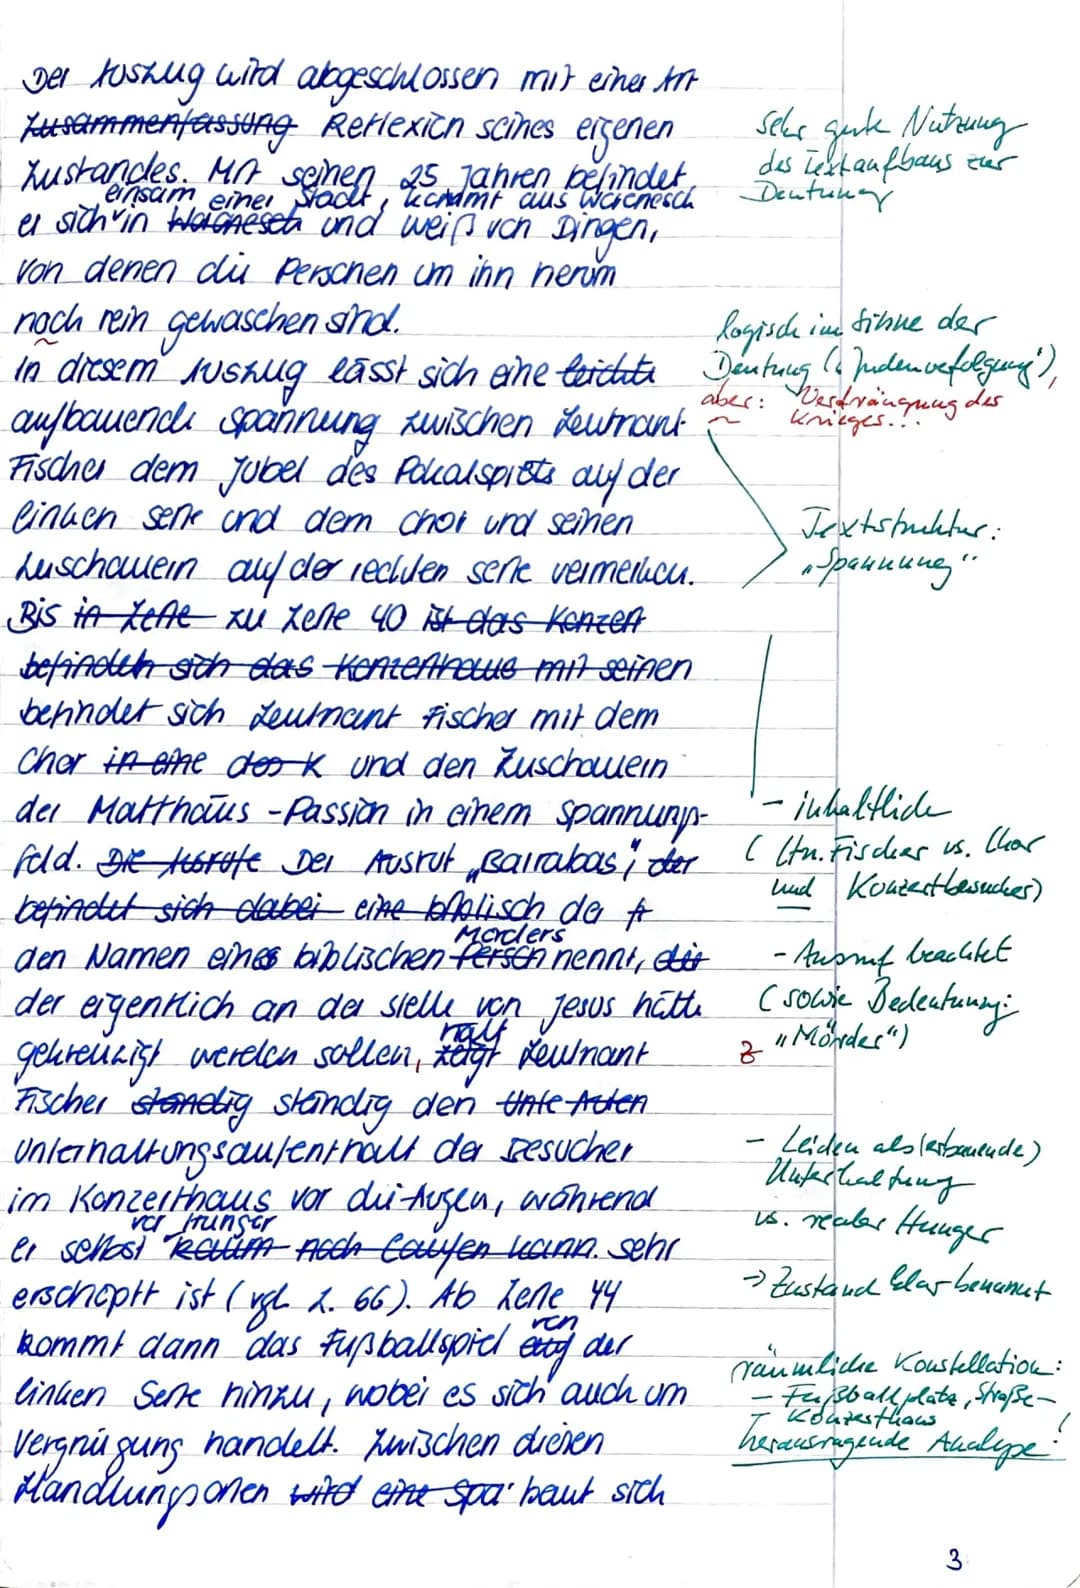 Der Auszug wird abgeschlossen mit einer Art
Zusammenfassung Reflexion seines eigenen
Zustandes. Mit seinen 25 Jahren befindet
einsam einer Stadt, kommt aus Woronesch
er sich in Woronesch und weiß von Dingen,
von denen die Personen um ihn herum
noch rein gewaschen sind.
In diesem Auszug lässt sich eine leichte
aufbauende Spannung zwischen Leutnant
Fischer dem Jubel des Pokalspiels auf der
linken Seite und dem Chor und seinen
Zuschauern auf der rechten Seite vermerken.
Bis in Zeile zu Zeile 40 ist das Konzert
befindet sich das Konzerthaus mit seinen
befindet sich Leutnant Fischer mit dem
Chor in eine des K und den Zuschauern
der Matthäus-Passion in einem Spannungs-
feld. Die Ausrufe Der Ausruf „Barrabas", der
befindet sich dabei eine biblisch der
Mörders
den Namen eines biblischen Person nennt, der
der eigentlich an der Stelle von Jesus hätte
hält
gekreuzigt werden sollen, zeigt Leutnant
Fischer ständig ständig den Unte Auten
Unterhaltungsaufenthalt der Besucher
im Konzerthaus vor die Augen, während
vor Hunger
er selbst kaum noch laufen kann. sehr
erschöpft ist (vgl. Z. 66). Ab Zeile 44
von
kommt dann das Fußballspiel auf der
linken Seite hinzu, wobei es sich auch um
Vergnügung handelt. Zwischen diesen
Handlungsorten wird eine Spa baut sich
sehr gute Nutzung
des Textaufbaus zur
Deutung
logisch im Sinne der
Deutung („Judenverfolgung"),
aber: Verdrängung des
Krieges...
Textstruktur:
„Spannung"
- inhaltlich
(Ltn. Fischer vs. Chor
und Konzertbesucher)
- Ausruf beachtet
(sowie Bedeutung:
„Mörder")
Z
- Leiden als (erbauende)
Unterhaltung
vs. realer Hunger
-> Zustand klar benannt
räumliche Konstellation:
- Fußballplatz, Straße -
Konzerthaus
herausragende Analyse!
3